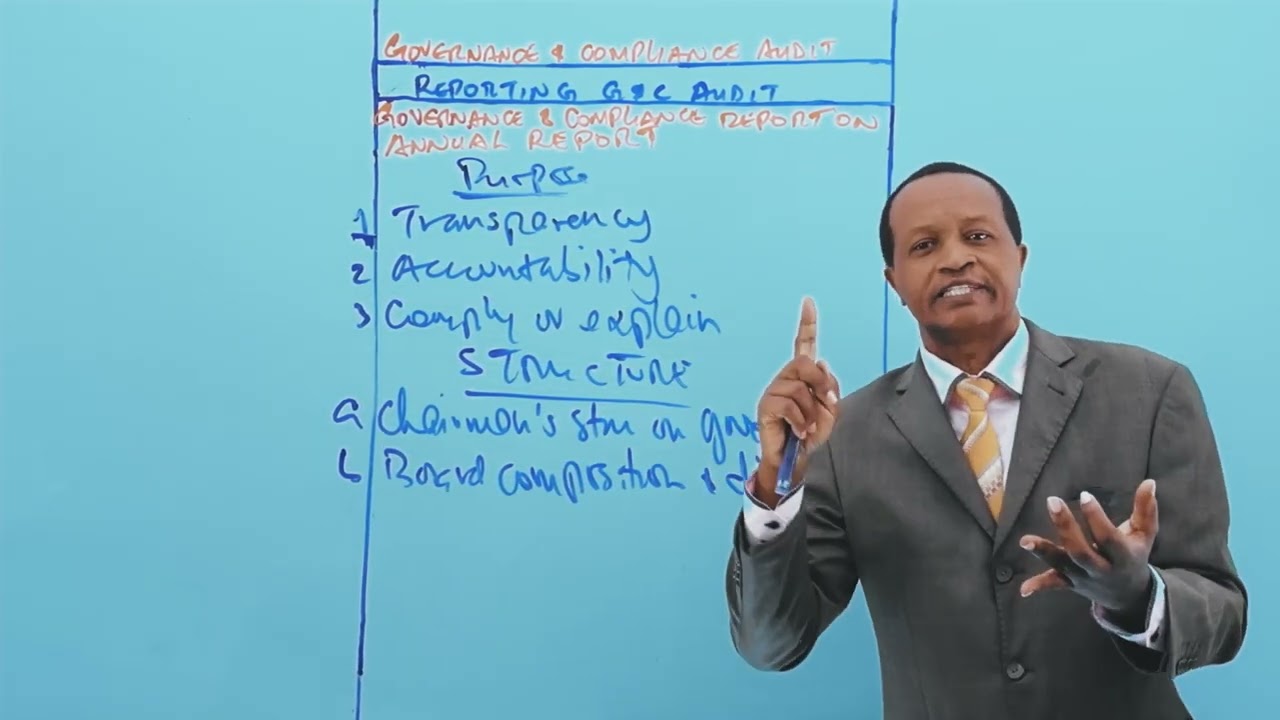 GOVERNANCE & COMPLIANCE AUDIT
REPORTING G&C AUDIT
GOVERNANCE & COMPLIANCE REPORT ON
ANNUAL REPORT
Purpose
1 Transparency
2 Accountability
3 Comply or explain
STRUCTURE
a Chairman's stm on gov
b Board composition & di